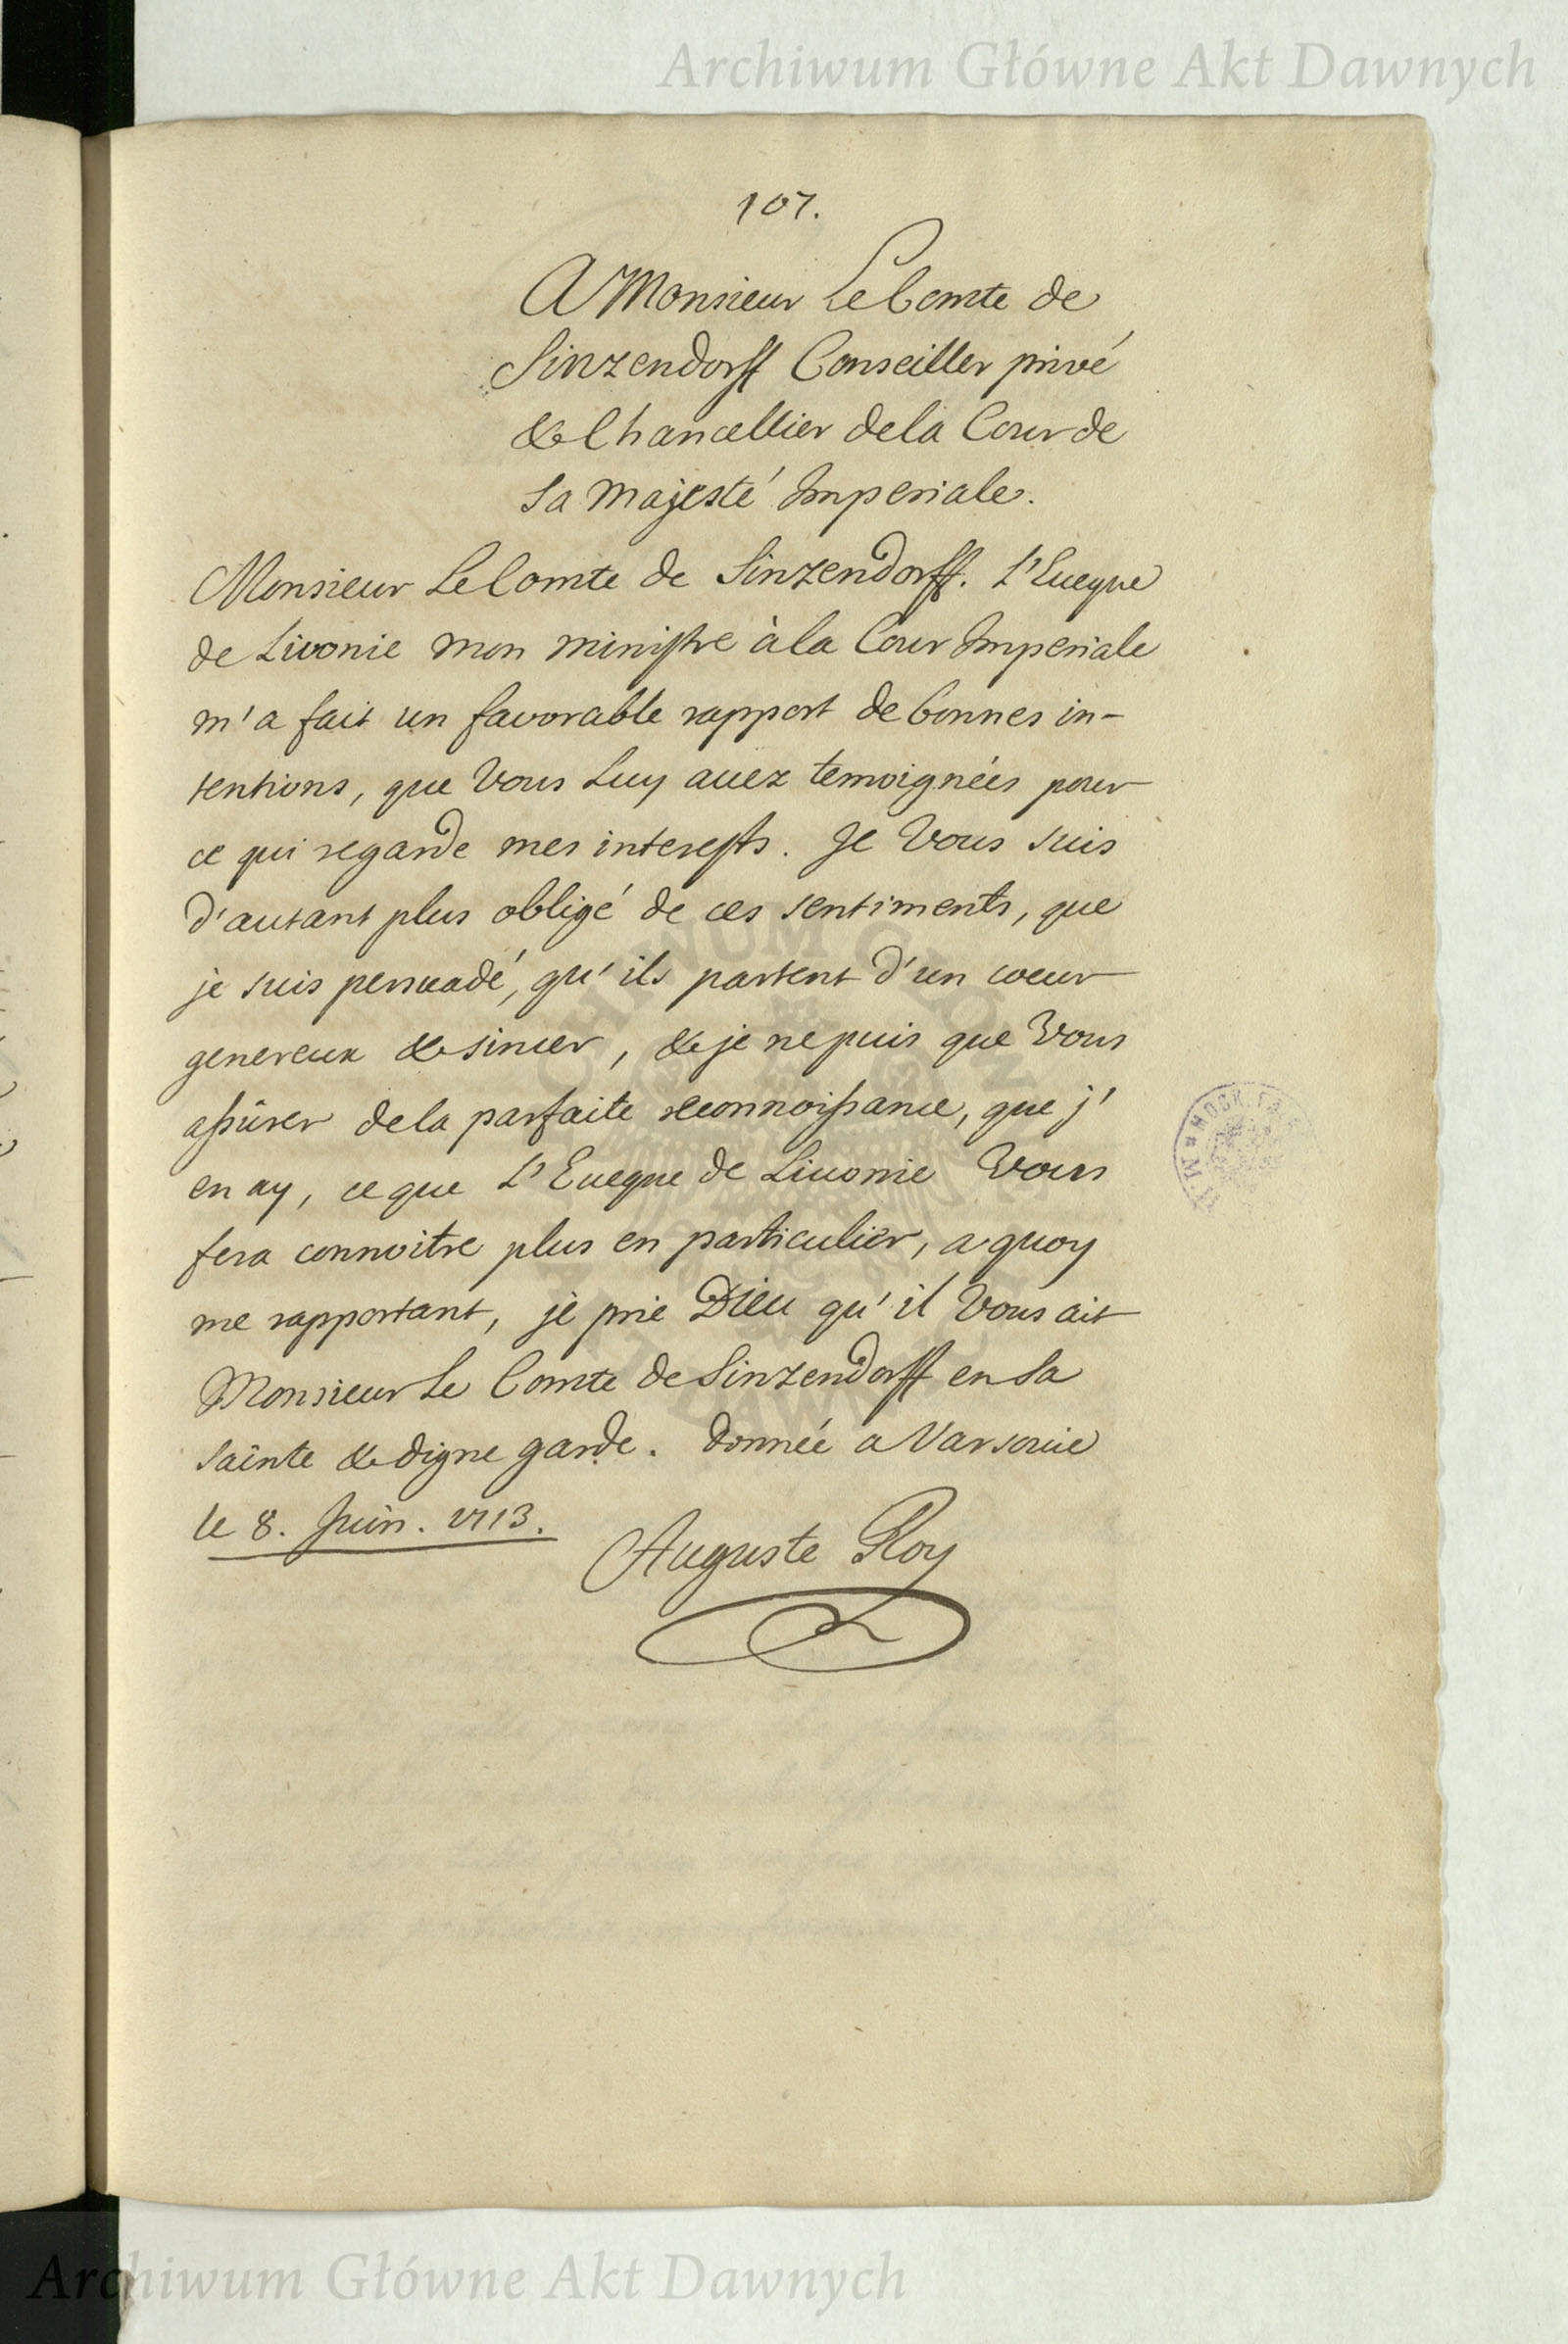 Archiwum Główne Akt Dawnych
107.
A Monsieur Le Comte de
Sinzendorff Conseiller privé
& Chancellier de la Cour de
Sa Majesté Imperiale.
Monsieur Le Comte de Sinzendorff. L'Eueque
de Livonie mon ministre à la Cour Imperiale
m'a fait un favorable rapport de bonnes in-
tentions, que Vous Luy auez temoignées pour
ce qui regarde mes interests. Je Vous suis
d'autant plus obligé de ces sentiments, que
je suis persuadé, qu'ils partent d'un coeur
genereux & sincer, & je ne puis que Vous
assûrer de la parfaite reconnoissance, que j'
en ay, ce que L'Eueque de Liuonie Vous
fera connoitre plus en particulier, a quoy
me rapportant, je prie Dieu qu'il Vous ait
Monsieur Le Comte de Sinzendorff en Sa
sainte & digne garde. Donnée a Varsouie
le 8. Juin. 1713.
Auguste Roy
Archiwum Główne Akt Dawnych